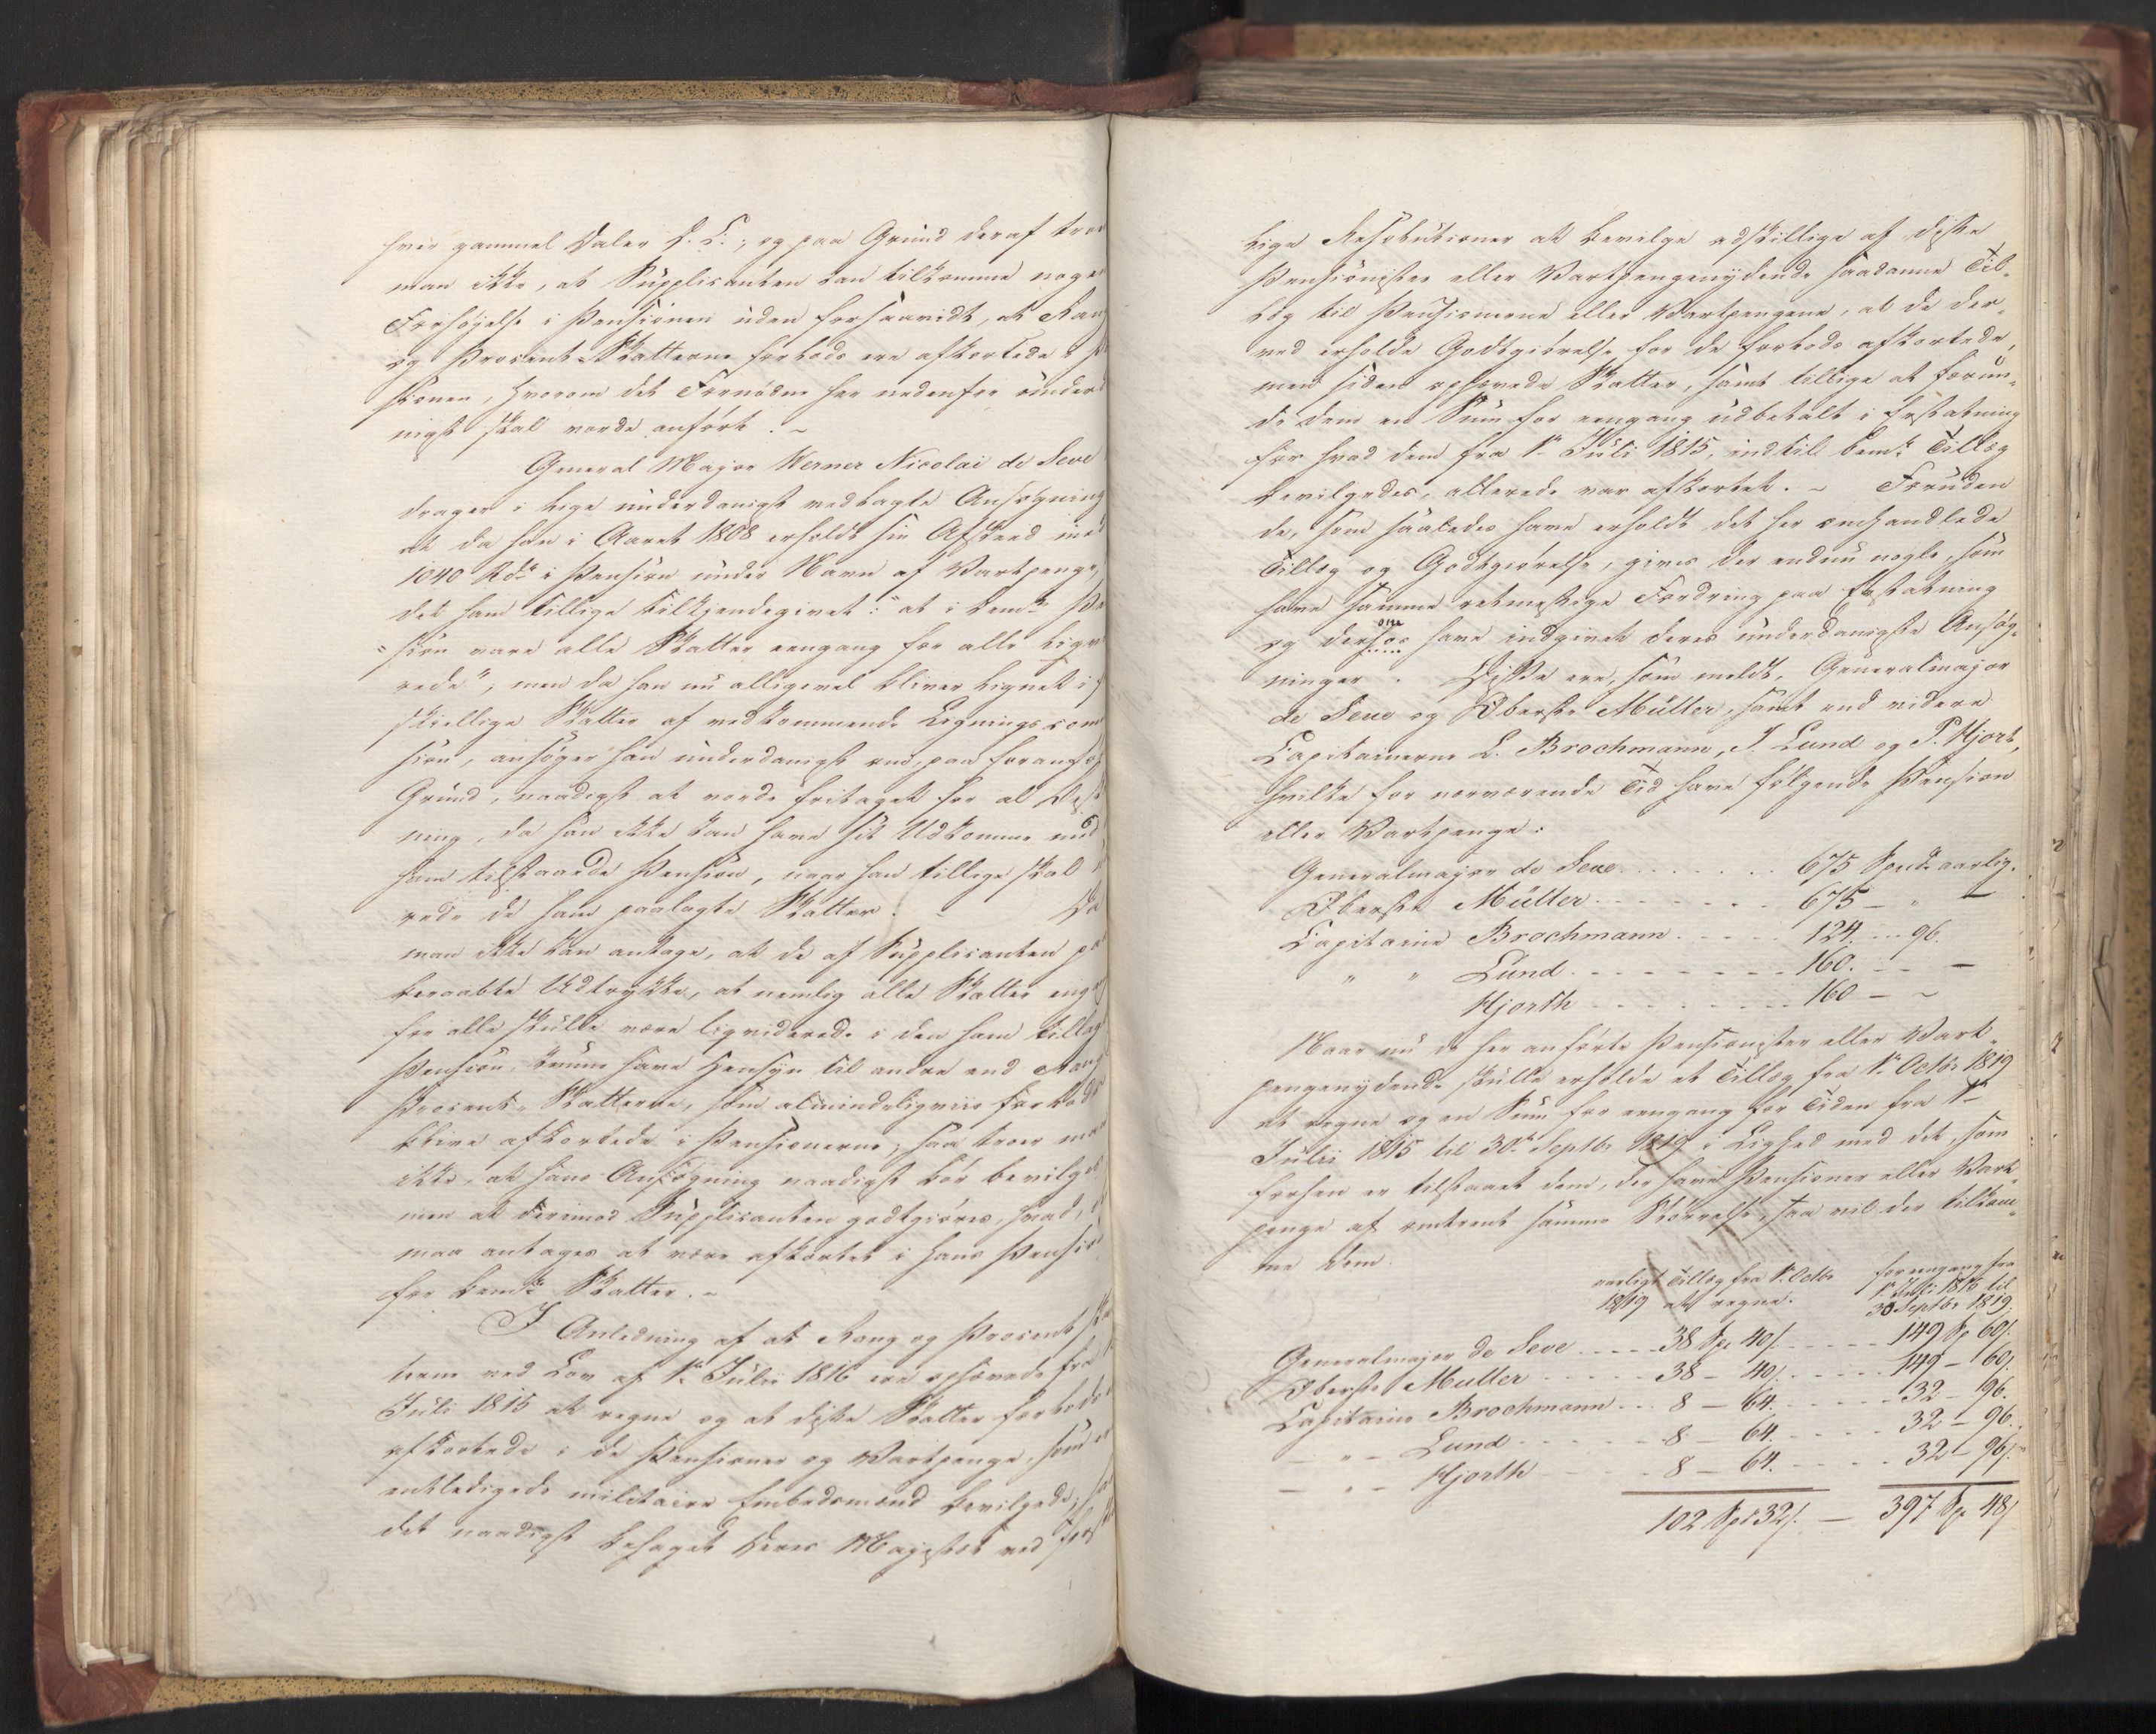 hver gammel Daler D. C.; og paa Grund deraf troer
man ikke, at Supplicanten kan tilkomme nogen
Forhøyelse i Pensionen uden forsaavidt, at Rang
og Procent-Skatterne forlods ere afkortede i Pen
sionen, hvorom det Fornødne her nedenfor under
nigst skal vorde anført. –
General Major Werner Nicolai de Seve
drager i lige underdanigst vedlagte Ansøgning
at da han i Aaret 1808 erholdt sin Afskeed med
1040 Rdr i Pension under Navn af Vartpenge,
det ham tillige tilkjendegivet: "at i bemte Pen
"sion vare alle Skatter eengang for alle liqvi
rede", men da han nu alligevel bliver lignet i for
skiellige Skatter af vedkommende Lignings com
sion, ansøger han underdanigst om, paa foranførte
Grund, naadigst at vorde fritaget for al
ning, da han ikke kan have sit Udkomme med
ham tilstaaede Pension, naar han tillige skal
rede de ham paalagte Skatter. – Da
man ikke kan antage, at de af Supplicanten paa
beraabte Udtrykke, at nemlig alle Skatter eengang
for alle skulle være liqviderede i den ham tillagte
Pension, kunne have Hensyn til andre end Rang
Procent-Skatterne, som almindeligviis forlods
bleve afkortede i Pensionerne; saa troer man
ikke, at hans Ansøgning naadigst bør bevilges
men at derimod Supplicanten godtgiøres, hvad,
maa antages at være afkortet i hans Pension
for bemte Skatter. –
I Anledning af at Rang og Procent Skat
terne ved Lov af 1te Julii 1816 ere ophævede fra
Juli 1815 at regne og at disse Skatter forlods
afkortede i de Pensioner og Vartpenge, som
entledigede militaire Embedsmænd bevilgede,
det naadigst behaget Deres Majestæt ved
lige Resolutioner at bevilge adskillige af disse
Pensionister eller Vartpengenydende saadanne Til-
læg til Pensionerne eller Vartpengene, at de der-
ved erholde Godtgiørelse for de forlods afkortede,
men siden ophævede Skatter, samt tillige at forun-
de dem en Sum for eengang udbetalt i Erstatning
for hvad dem fra 1te Juli 1815, indtil bemte Tillæg
bevilgedes, allerede var afkortet. – Foruden
de, som saaledes have erholdt det her omhandlede
Tillæg og Godtgiørelse, gives der endnu nogle, som
have samme retmæssige Fordring paa Erstatning
og derom have indgivet deres underdanigste Ansøg-
ninger. Disse ere, som meldt, Generalmajor
de Seve og Oberste Müller, samt end videre
Capitainerne L. Brochmann, J. Lund og P. Hjort,
hvilke for nærværende Tid have følgende Pension
eller Vartpenge:
Generalmajor de Seve . . . . . . . 675 Spd. aarlig.
Oberste Müller . . . . . . . 675 – " –
Capitaine Brochmann . . . . . 124. . . 96.
" " Lund . . . . . . . . 160. . . –
Hjorth . . . . . . . . 160 – ~
Naar nu de her anførte Pensionister eller Vart-
pengenydende skulle erholde et Tillæg fra 1te Octbr 1819
at regne og en Sum for eengang for Tiden fra 1te
Julii 1815 til 30te Septbr 1819 i Lighed med det, som
forhen er tilstaaet dem, der have Pensioner eller Vart-
penge af omtrent samme Størrelse, saa vil der tilkom-
me dem.
aarligt Tillæg fra 1te Octbr 1819 at regne. for eengang fra 1te Juli 1815 til 30 Septbr 1819.
Generalmajor de Seve . . . . 38 Sp. 40/. . . . . . 149 Sp 60/.
Oberste Müller . . . . . 38 – 40/. . . . . . 149 – 60/.
Capitaine Brochmann . . . 8 – 64. . . . . . 32 – 96.
– " – Lund . . . . . 8 – 64. . . . . 32 – 96.
– " – Hjorth . . . . . 8 – 64. . . . . 32 – 96/.
102 Spd 32/. – 397 Sp. 48/